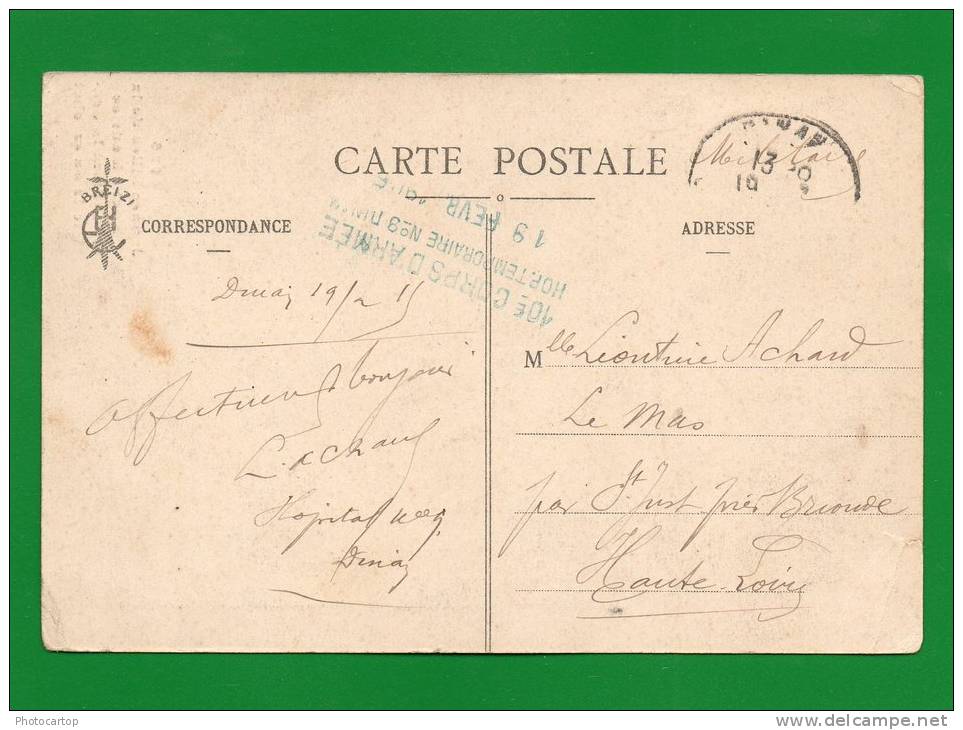 CARTE POSTALE
BREIZ
CORRESPONDANCE
ADRESSE
Militaire
DINAN
13 30
19
10E CORPS D'ARMÉE
HOP. TEMPORAIRE N°9 DINAN
19 FEVR 1915
Dinan 19/2 15
Affectueux bonjour
L. Achard
Hopital n°9
Dinan
Mlle Léontine Achard
Le Mas
par St Just près Brioude
Haute Loire
Photocartop
www.delcampe.net